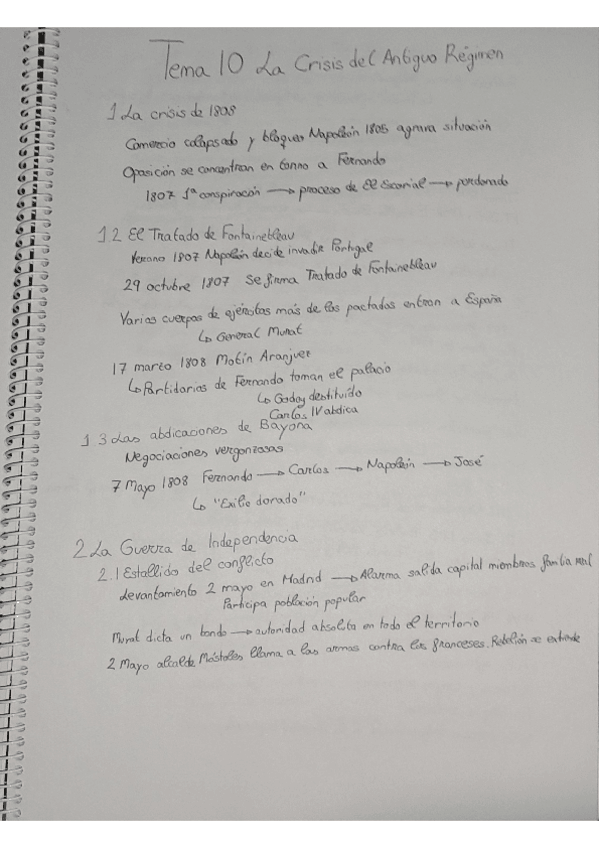 Tema 10 La Crisis del Antiguo Régimen
1 La crisis de 1808
Comercio colapsado y bloqueo Napoleón 1805 agrava situación
Oposición se concentran en torno a Fernando
1807 1ª conspiración → proceso de El Escorial → perdonado
1.2 El Tratado de Fontainebleau
Verano 1807 Napoleón decide invadir Portugal
29 octubre 1807 se firma Tratado de Fontainebleau
Varios cuerpos de ejércitos más de los pactados entran a España
↳ General Murat
17 marzo 1808 Motín Aranjuez
↳ Partidarios de Fernando toman el palacio
↳ Godoy destituido
Carlos IV abdica
1.3 Las abdicaciones de Bayona
Negociaciones vergonzosas
7 Mayo 1808 Fernando → Carlos → Napoleón → José
↳ "Exilio dorado"
2 La Guerra de Independencia
2.1 Estallido del conflicto
Levantamiento 2 mayo en Madrid → Alarma salida capital miembros familia real
Participa población popular
Murat dicta un bando → autoridad absoluta en todo el territorio
2 Mayo alcalde Móstoles llama a las armas contra los franceses. Rebelión se extiende